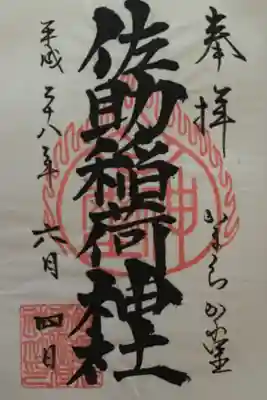 奉拝 かまくらかくれ里
佐助稲荷神社
平成二十八年六月四日